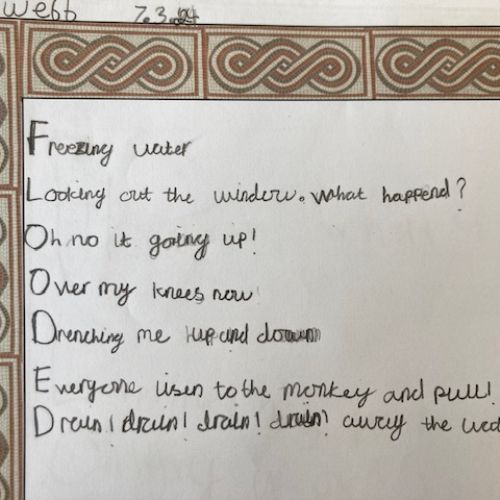 webb 7.3.24
Freezing water
Looking out the window. What happend?
Oh no it going up!
Over my knees now
Drenching me up and down
Everyone lisen to the monkey and pull!
Drain! drain! drain! drain! away the